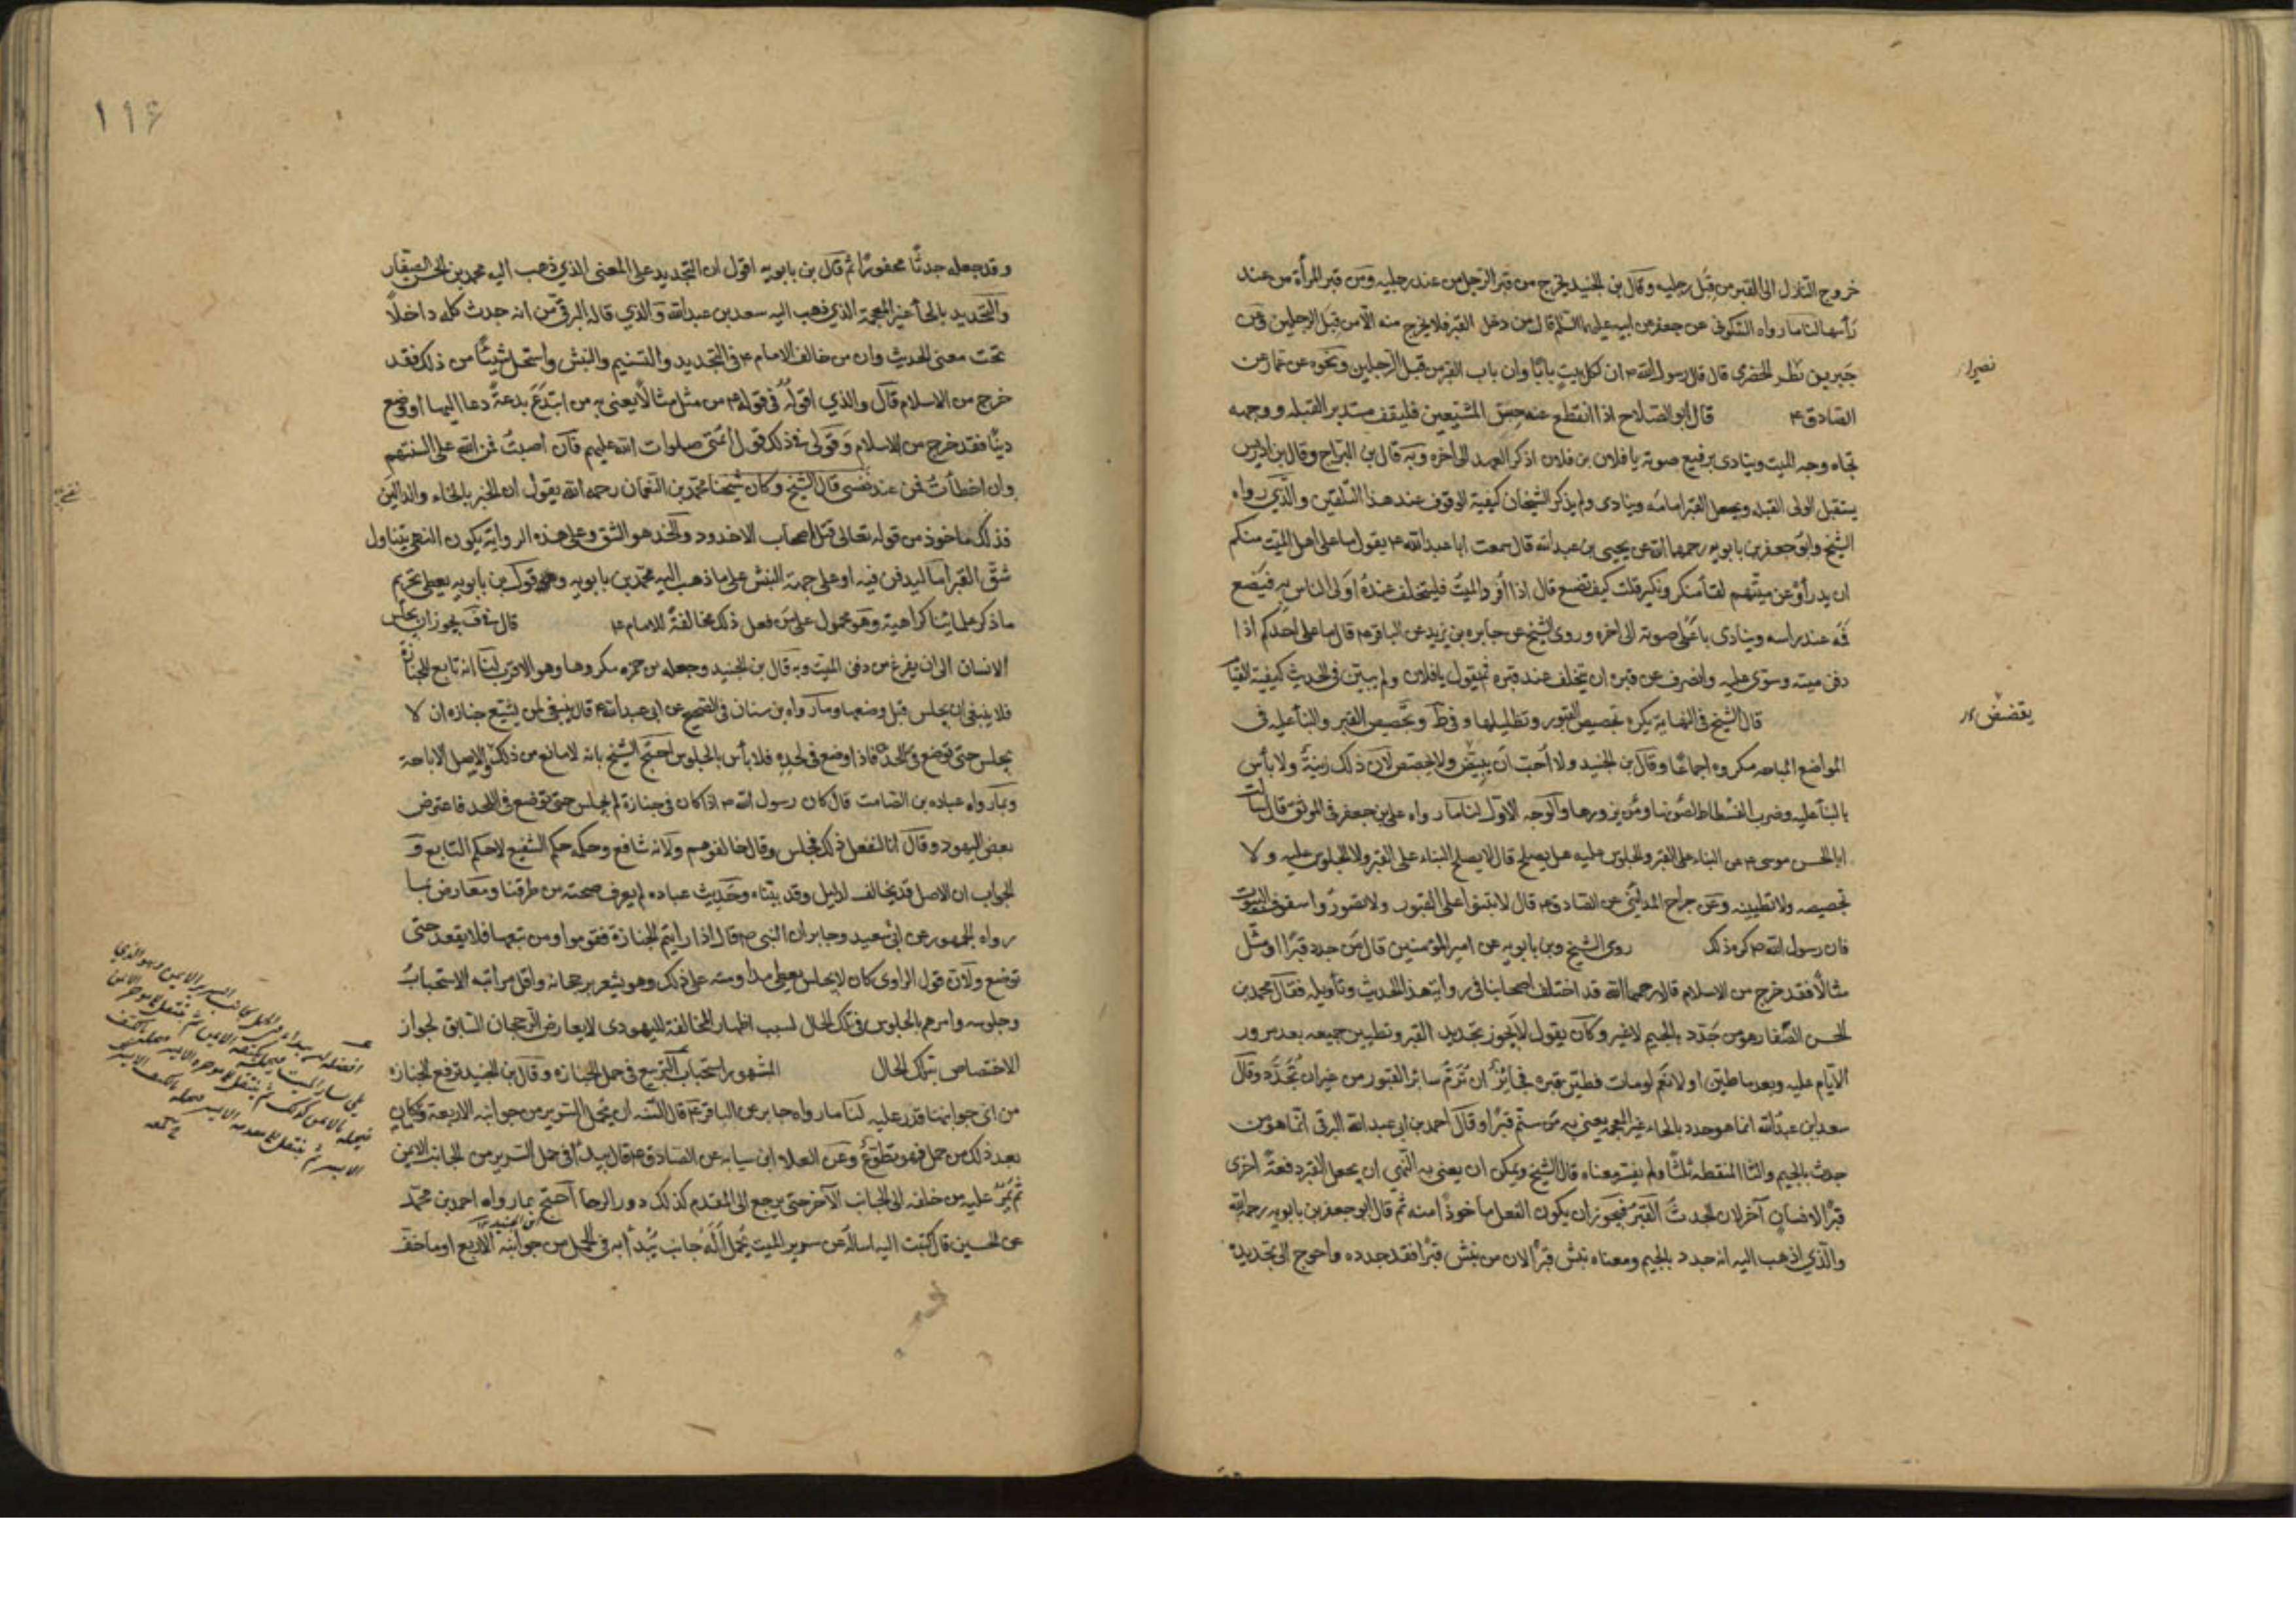 خروج النازل الى القبر من قبل رجليه وقال بن الجنيد يخرج من قبر الرجل من عند رجليه ومن قبر المرأة من عند
رأسها لنا ما رواه السكونى عن جعفر عن ابيه عليهما السلم قال من دخل القبر فلا يخرج منه الا من قبل الرجلين وعن
جبير بن نظير الحضرى قال قال رسول الله ص ان لكل بيت بابًا وان باب القبر من قبل الرجلين ونحوه عن عمار عن
نضير
الصادق ع قال ابو الصلاح اذا انقطع عنه المشيعين فليقف مستدبر القبله ووجهه
تجاه وجه الميت وينادى برفيع صوته يا فلان بن فلان اذكر العهد الى اخره وبه قال بن البراج وقال بن ادريس
يستقبل الولى القبله ويجعل القبر امامه وينادى ولم يذكر الشيخان كيفية الوقوف عند هذا التلقين والذي رواه
الشيخ وابو جعفر بن بابويه رحمهما الله عن يحيى بن عبدالله قال سمعت ابا عبدالله ع يقول ما على اهل الميت منكم
ان يدرأوْ عن ميتهم لقا منكر ونكير قلت كيف نصنع قال اذا اُفرد الميتُ فليتخلف عندهُ اولى الناس به فيضع
فمه عند راسه وينادى باعلى صوته الى اخره وروى الشيخ عن جابر بن يزيد عن الباقر ع قال ما على احدكم اذا
دفن ميته وسوّى عليه وانصرف عن قبره ان يتخلف عند قبره ثم يقول يا فلان ولم يبين فى الحديث كيفية القيا
قال الشيخ فى النهاية يكره تجصيص القبور وتظليلها وفى ط وتجصيص القبر والبنأ عليه فى
المواضع المباحه مكروه اجماعًا وقال بن الجنيد ولا اُحبّ ان ولا يجصص لان ذلك زينةٌ ولا بأس
بالبنأ عليه وضرب الفسطاط لصونها ومن يزورها والوجه الاول لنا ما رواه على بن جعفر فى الموثق قال سألت
ابا الحسن موسى ع عن البناء على القبر والجلوس عليه هل يصلح قال لا يصلح البناء على القبر ولا الجلوس عليه ولا
تجصيصه ولا تطيينه وعن جراح المدائنى عن الصادق ع قال لا تبنوا على القبور ولا تصوّروا سقوف البيوت
فان رسول الله ص كره ذلك روى الشيخ وبن بابويه عن امير المؤمنين قال من جدد قبرًا او مثّل
مثالًا فقد خرج من الاسلام قالا رحمهما الله قد اختلف اصحابنا فى رواية هذا الحديث وتأويله فقال محمد بن
الحسن الصفار هو من جدّد بالجيم لا غير وكان يقول لا يجوز تجديد القبر وتطيين جميعه بعد مرور
الايام عليه وبعد ما طين اولا نعم لو مات فطين قبره فجايز ان تُرَمّ سائر القبور من غير ان تُجَدّد وقال
سعد بن عبدالله انما هو حدد بالحاء غير المعجمه يعنى به من سنّم قبرًا وقال احمد بن ابى عبد الله البرقى انما هو من
جدث بالجيم والثا المنقطه ثلثًا ولم يفسر معناه قال الشيخ ويمكن ان يعنى به النهى ان يجعل القبر دفعةً اخرى
قبرًا لانسانٍ آخر لان الجدث القبر فيجوز ان يكون الفعل مأخوذًا منه ثم قال ابو جعفر بن بابويه رحمه الله
والذي اذهب اليه انه جدد بالجيم ومعناه نبش قبرًا لان من نبش قبرًا فقد جدده واحوج الى تجديده
١١۶
وقد جعله جدثًا محفورًا ثم قال بن بابويه اقول ان التجديد على المعنى الذي ذهب اليه محمد بن الحسن الصفار
والتحديد بالحأ غير المعجمة الذي ذهب اليه سعد بن عبدالله والذي قاله البرقي من انه جدث كله داخلًا
تحت معنى الحديث وان من خالف الامام ع فى التجديد والتسنيم والنبش واستحل شيئًا من ذلك فقد
خرج من الاسلام قال والذي اقوله فى قوله ع من مثل مثالًا يعنى به من ابتدع بدعةً دعا اليها او وضع
دينًا فقد خرج من الاسلام وقولى فى ذلك قول اُئمتى صلوات الله عليهم فان اصبتُ فمن الله على السنتهم
وان اخطأتُ فمن عند نفسى قال الشيخ وكان شيخنا محمد بن النعمان رحمه الله يقول ان الخبر بالخاء والدالين
فذلك ماخوذ من قوله تعالى قتل اصحاب الاخدود والخد هو الشق وعلى هذه الرواية يكون النهى يتناول
شقّ القبر اما ليدفن فيه او على جهة النبش على ما ذهب اليه محمد بن بابويه وقول بن بابويه يعطى تحريم
ما ذكر علمائنا كراهيته وهو محمول على من فعل ذلك مخالفةً للامام ع قال فى ف يجوز ان يجلس
الانسان الى ان يفرغ من دفن الميت وبه قال بن الجنيد وجعله بن حمزه مكروها وهو الاقرب لنا انه تابع للجنازة
فلا ينبغى ان يجلس قبل وضعها وما رواه بن سنان فى الصحيح عن ابى عبدالله ع قال ينبغى لمن يشيّع جنازه ان لا
يجلس حتى توضع فى لحده فاذا وضع فى لحده فلا بأس بالجلوس احتج الشيخ بانه لا مانع من ذلك والاصل الاباحة
وبما رواه عباده بن الصامت قال كان رسول الله ص اذا كان فى جنازة لم يجلس حتى توضع فى اللحد فاعترض
بعض اليهود وقال انا لنفعل ذلك فجلس وقال خالفوهم ولانه شافع وحكمه حكم الشفيع لا حكم التابع و
الجواب ان الاصل قد يخالف لدليل وقد بيناه وحديث عباده لم يعرف صحته من طرقنا ومعارض بما
رواه الجمهور عن ابى سعيد وجابر ان النبى ص قال اذا رايتم الجنازة فقوموا ومن تبعها فلا يقعد حتى
توضع ولان قول الراوى كان لا يجلس يعطى مداومته على ذلك وهو يشعر برجحانه واقل مراتبه الاستحبابُ
وجلوسه وامرهم بالجلوس فى تلك الحال لسبب اظهار المخالفة لليهودى لا يعارض الرجحان السابق لجواز
الاختصاص بتلك الحال المشهور استحباب التربيع فى حمل الجنازه وقال بن الجنيد يرفع الجنازه
من اىّ جوانبها قدر عليه لنا ما رواه جابر عن الباقر ع قال السنّه ان يحمل السرير من جوانبه الاربعة وكان
بعد ذلك من حمل فهو تطوّع وعن العلاء ابن سيابه عن الصادق ع قال يبدأ فى حمل السرير من الجانب الايمن
ثم يمرّ عليه من خلفه الى الجانب الآخر حتى يرجع الى المقدم كذلك دور الرحا احتج بن الجنيد بما رواه احمد بن محمد
عن الحسين قال كتبت اليه اساله عن سرير الميت يُحمل أله جانب يُبدأ به فى الحمل من جوانبه الاربع او ما خف